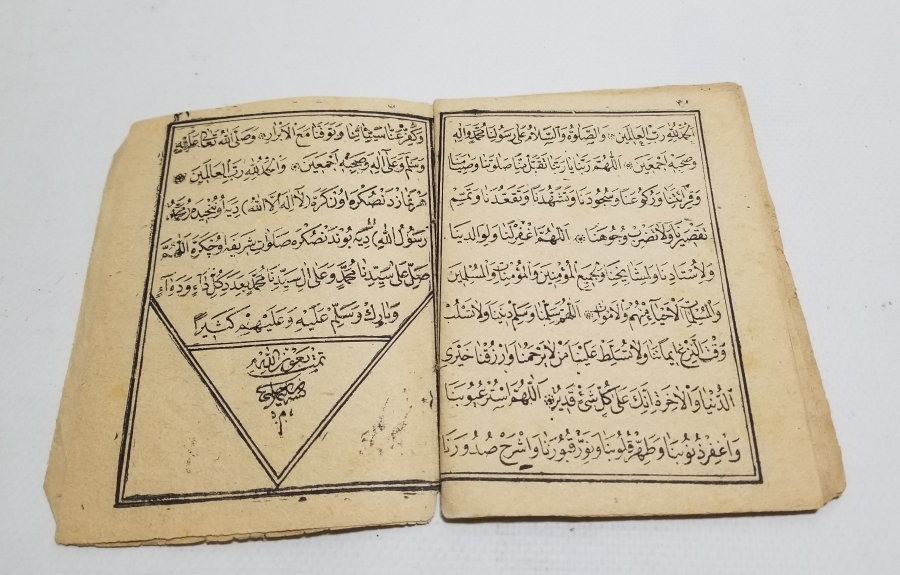 الحمد لله رب العالمين والصلوة والسلام على رسولنا محمد وآله
وصحبه اجمعين اللهم ربنا يا ربنا تقبل منا صلوتنا وصيامنا
وقرائتنا وركوعنا وسجودنا وتشهدنا وتقعدنا وتمم
تقصيرنا ولا تضرب وجوهنا اللهم اغفر لنا ولوالدينا
ولاستاذينا ولمشايخنا ولجميع المؤمنين والمؤمنات والمسلمين
والمسلمات الاحياء منهم والاموات اللهم سلمنا وسلم ديننا ولا تسلب
وقت النزع ايماننا ولا تسلط علينا من لا يرحمنا وارزقنا خيري
الدنيا والاخرة انك على كل شئ قدير اللهم استر عيوبنا
واغفر ذنوبنا وطهر قلوبنا ونور قبورنا واشرح صدورنا
وكفر عنا سيئاتنا وتوفنا مع الابرار وصلى الله تعالى عليه
وسلم وعلى آله وصحبه اجمعين والحمد لله رب العالمين
هر نمازدن صكره اوتز كره (لا اله الا الله)
رسول الله) صكره صلوات شريفه اللهم
صل على سيدنا محمد وعلى آل سيدنا محمد بعدد كل داء ودواء
وبارك وسلم عليه وعليهم كثيرا
تمت بعون الله